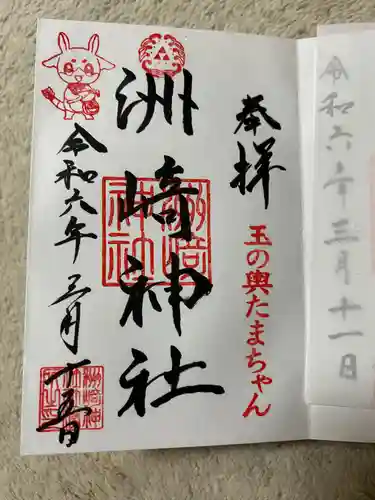 奉拝
玉の輿たまちゃん
洲崎神社
洲崎神社
令和六年三月十五日
令和六年三月十一日